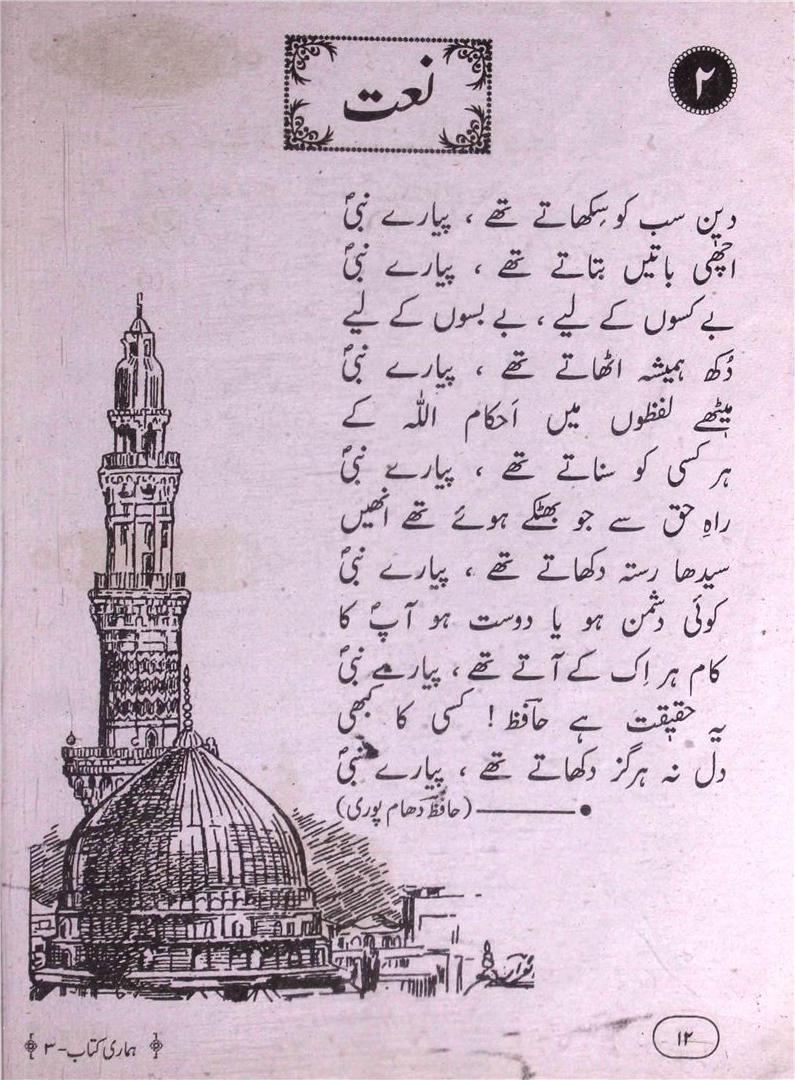 ۲
نعت
دین سب کو سِکھاتے تھے ، پیارے نبیؐ
اچھّی باتیں بتاتے تھے ، پیارے نبیؐ
بے کسوں کے لیے ، بے بسوں کے لیے
دُکھ ہمیشہ اٹھاتے تھے ، پیارے نبیؐ
میٹھے لفظوں میں اَحکام اللہ کے
ہر کسی کو سناتے تھے ، پیارے نبیؐ
راہِ حق سے جو بھٹکے ہوئے تھے انھیں
سیدھا رستہ دکھاتے تھے ، پیارے نبیؐ
کوئی دشمن ہو یا دوست ہو آپؐ کا
کام ہر اِک کے آتے تھے ، پیارے نبیؐ
یہ حقیقت ہے حافظؔ ! کسی کا کبھی
دل نہ ہرگز دکھاتے تھے ، پیارے نبیؐ
(حافظؔ دھام پوری)
۱۲
ہماری کتاب-۳